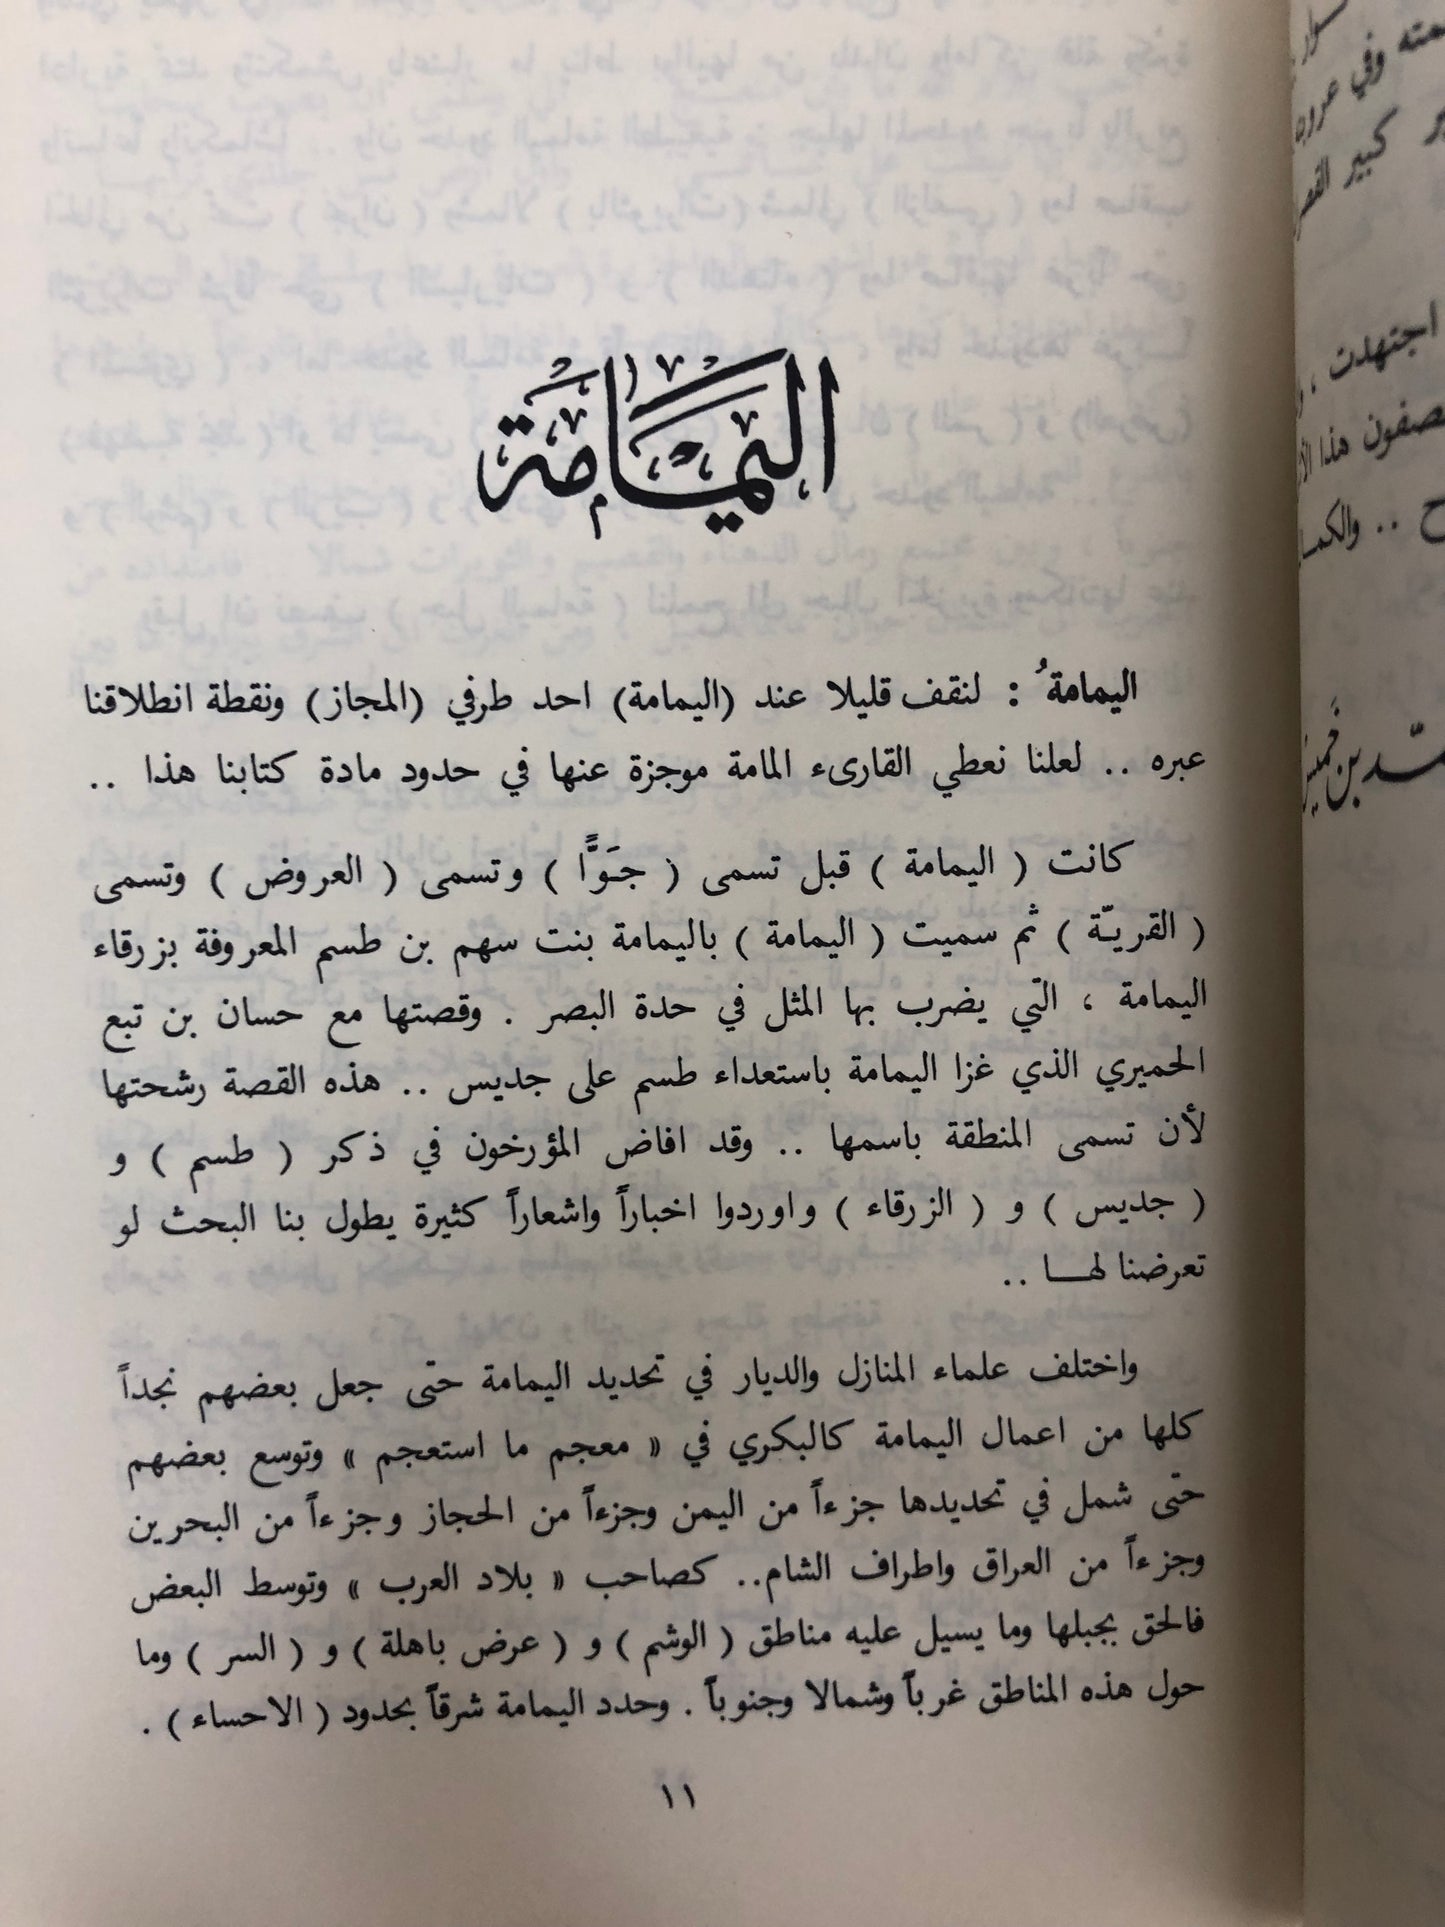 اليمامة
اليمامةُ : لنقف قليلا عند (اليمامة) احد طرفي (المجاز) ونقطة انطلاقنا
عبره .. لعلنا نعطي القارىء المامة موجزة عنها في حدود مادة كتابنا هذا ..
كانت ( اليمامة ) قبل تسمى ( جَوًّا ) وتسمى ( العروض ) وتسمى
( القريّة ) ثم سميت ( اليمامة ) باليمامة بنت سهم بن طسم المعروفة بزرقاء
اليمامة ، التي يضرب بها المثل في حدة البصر . وقصتها مع حسان بن تبع
الحميري الذي غزا اليمامة باستعداء طسم على جديس .. هذه القصة رشحتها
لأن تسمى المنطقة باسمها .. وقد افاض المؤرخون في ذكر ( طسم ) و
( جديس ) و ( الزرقاء ) واوردوا اخباراً واشعاراً كثيرة يطول بنا البحث لو
تعرضنا لهــا ..
واختلف علماء المنازل والديار في تحديد اليمامة حتى جعل بعضهم نجداً
كلها من اعمال اليمامة كالبكري في « معجم ما استعجم » وتوسع بعضهم
حتى شمل في تحديدها جزءاً من اليمن وجزءاً من الحجاز وجزءاً من البحرين
وجزءاً من العراق واطراف الشام.. كصاحب « بلاد العرب » وتوسط البعض
فالحق بجبلها وما يسيل عليه مناطق ( الوشم ) و ( عرض باهلة ) و ( السر ) وما
حول هذه المناطق غرباً وشمالا وجنوباً . وحدد اليمامة شرقاً بحدود ( الاحساء ) .
١١
وفي
كبير
اجتهدت ،
هذا
.. 
بن خميس